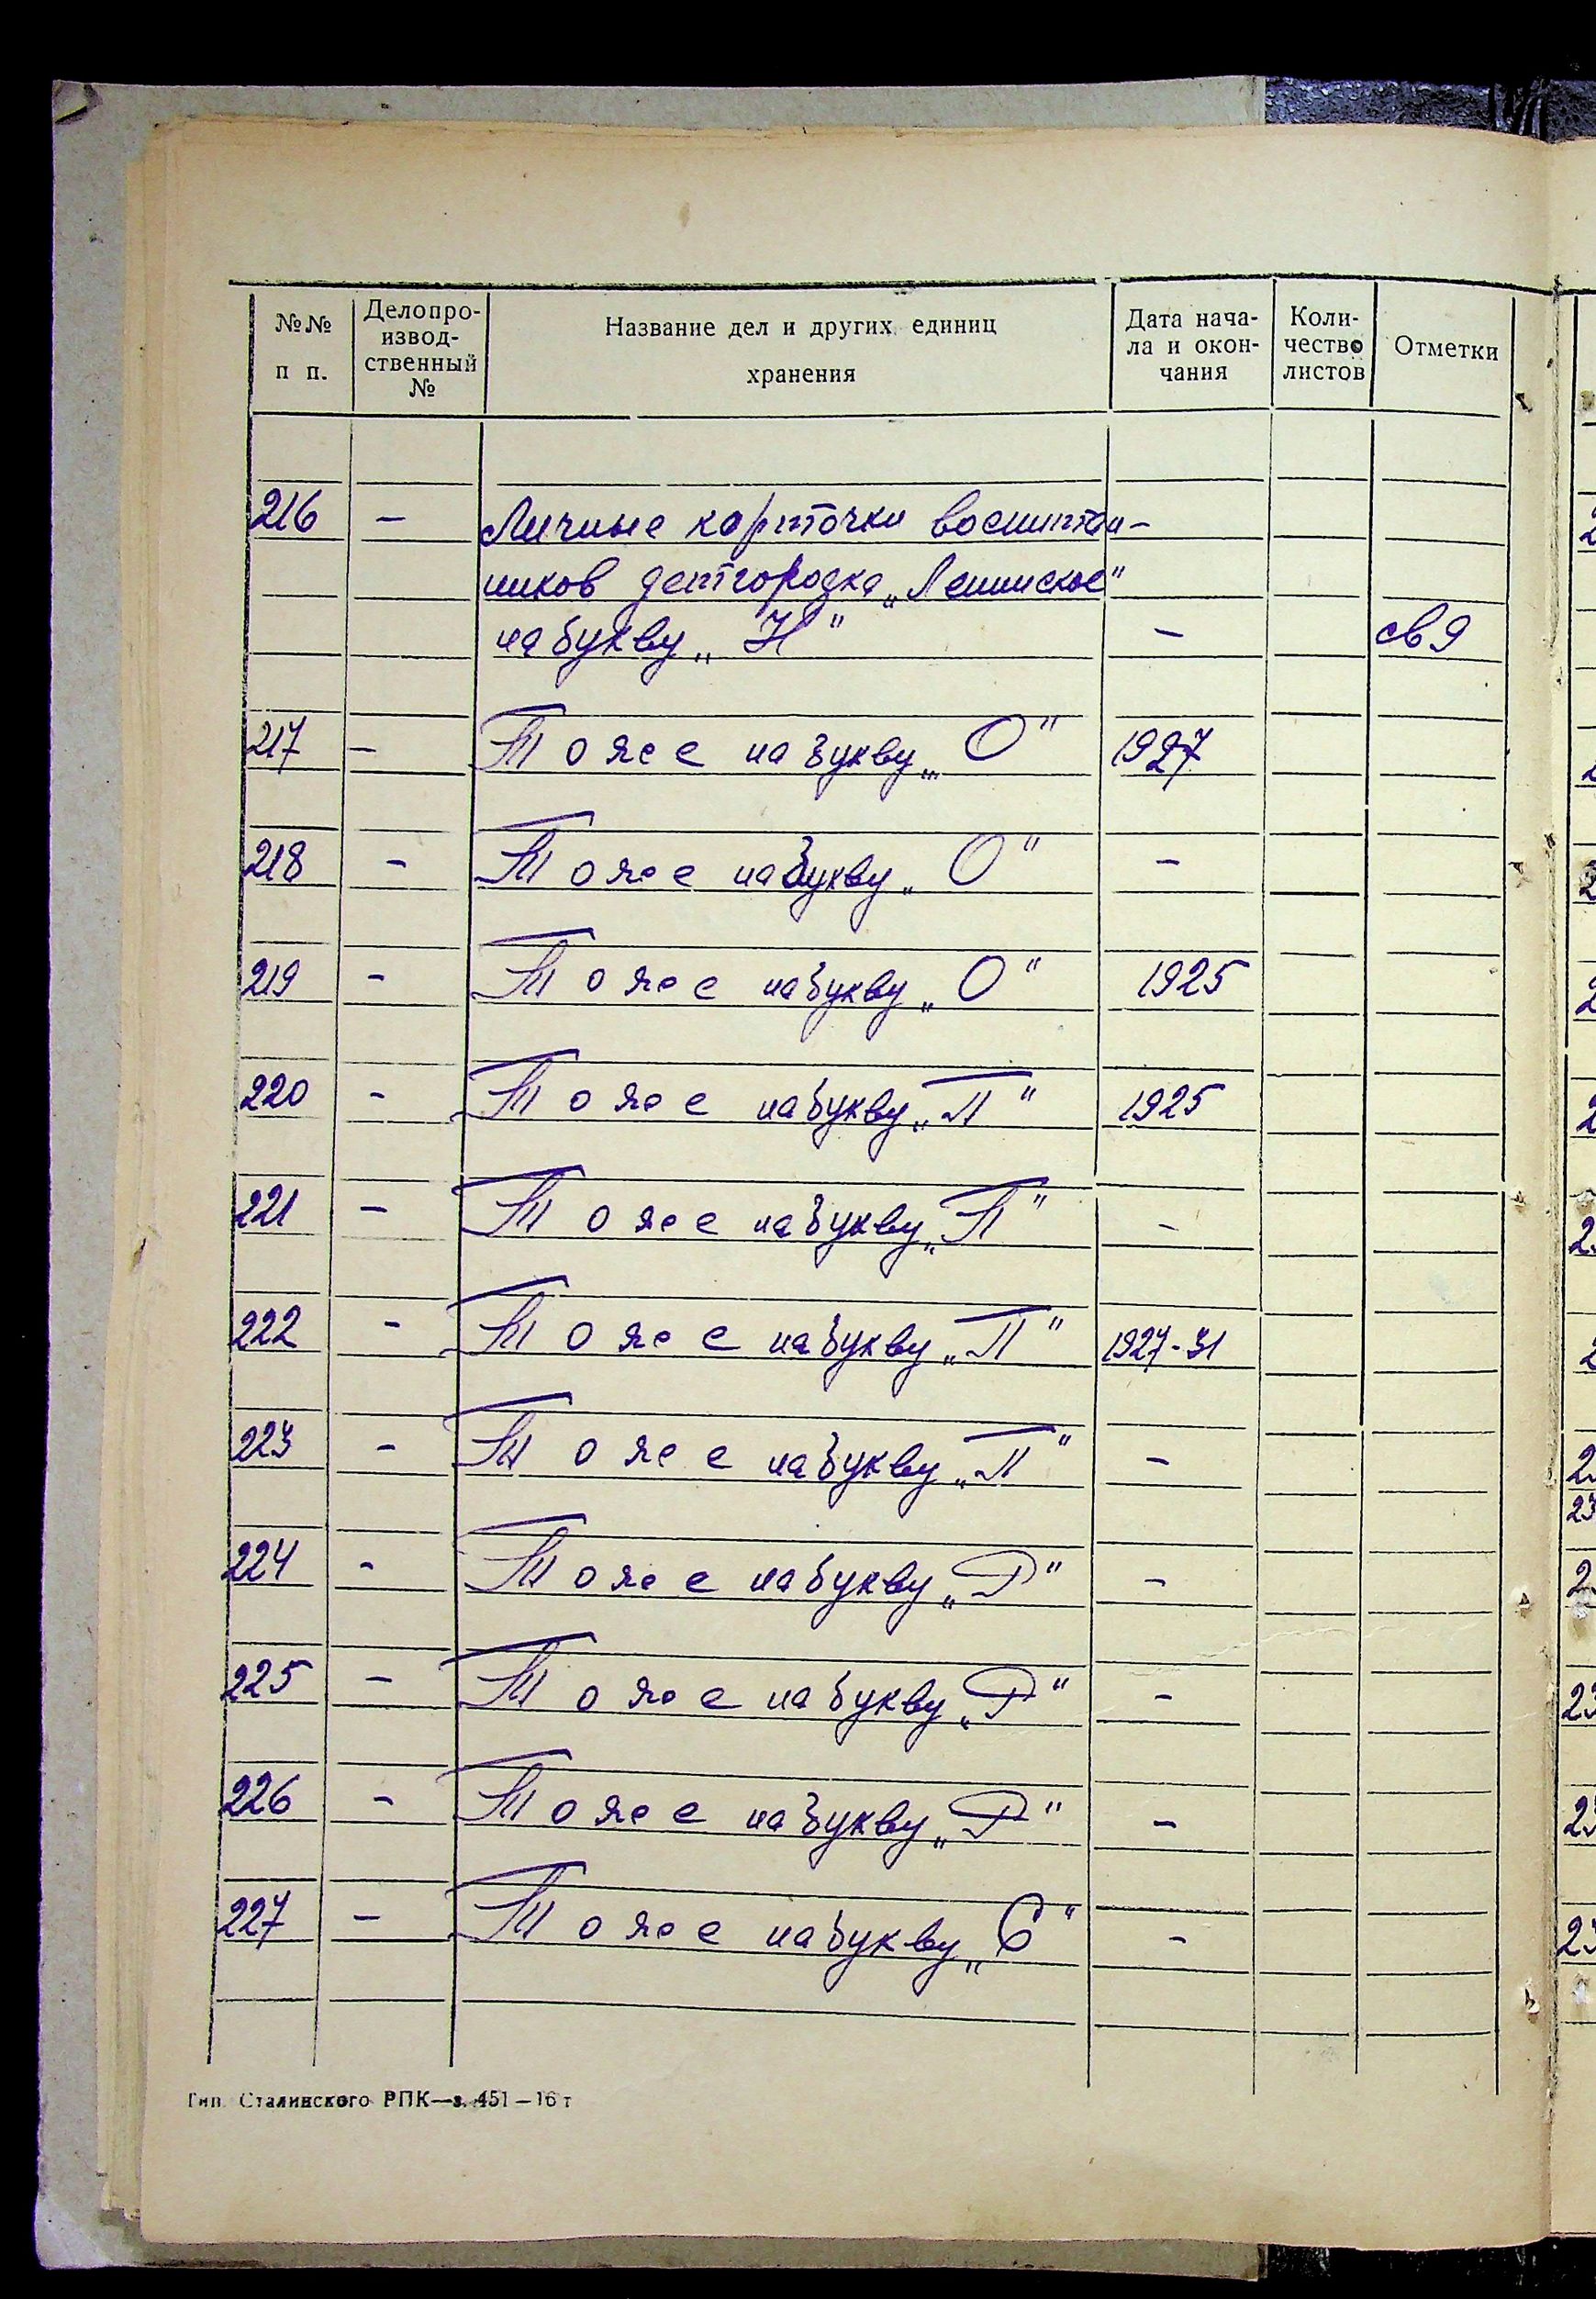 №№ п п. Делопроизвод-ственный № Название дел и других единиц хранения Дата нача-ла и окон-чания Коли-чество листов Отметки
216 - Личные карточки воспитан-
ников детгородка „Ленинское"
на букву „Н" - св 9
217 - То же на букву „О" 1927
218 - То же на букву „О" -
219 - То же на букву „О" 1925
220 - То же на букву „П" 1925
221 - То же на букву „П" -
222 - То же на букву „П" 1927-31
223 - То же на букву „П" -
224 - То же на букву „Р" -
225 - То же на букву „Р" -
226 - То же на букву „Р" -
227 - То же на букву „С" -
Тип. Сталинского РПК—з. 451—16 т